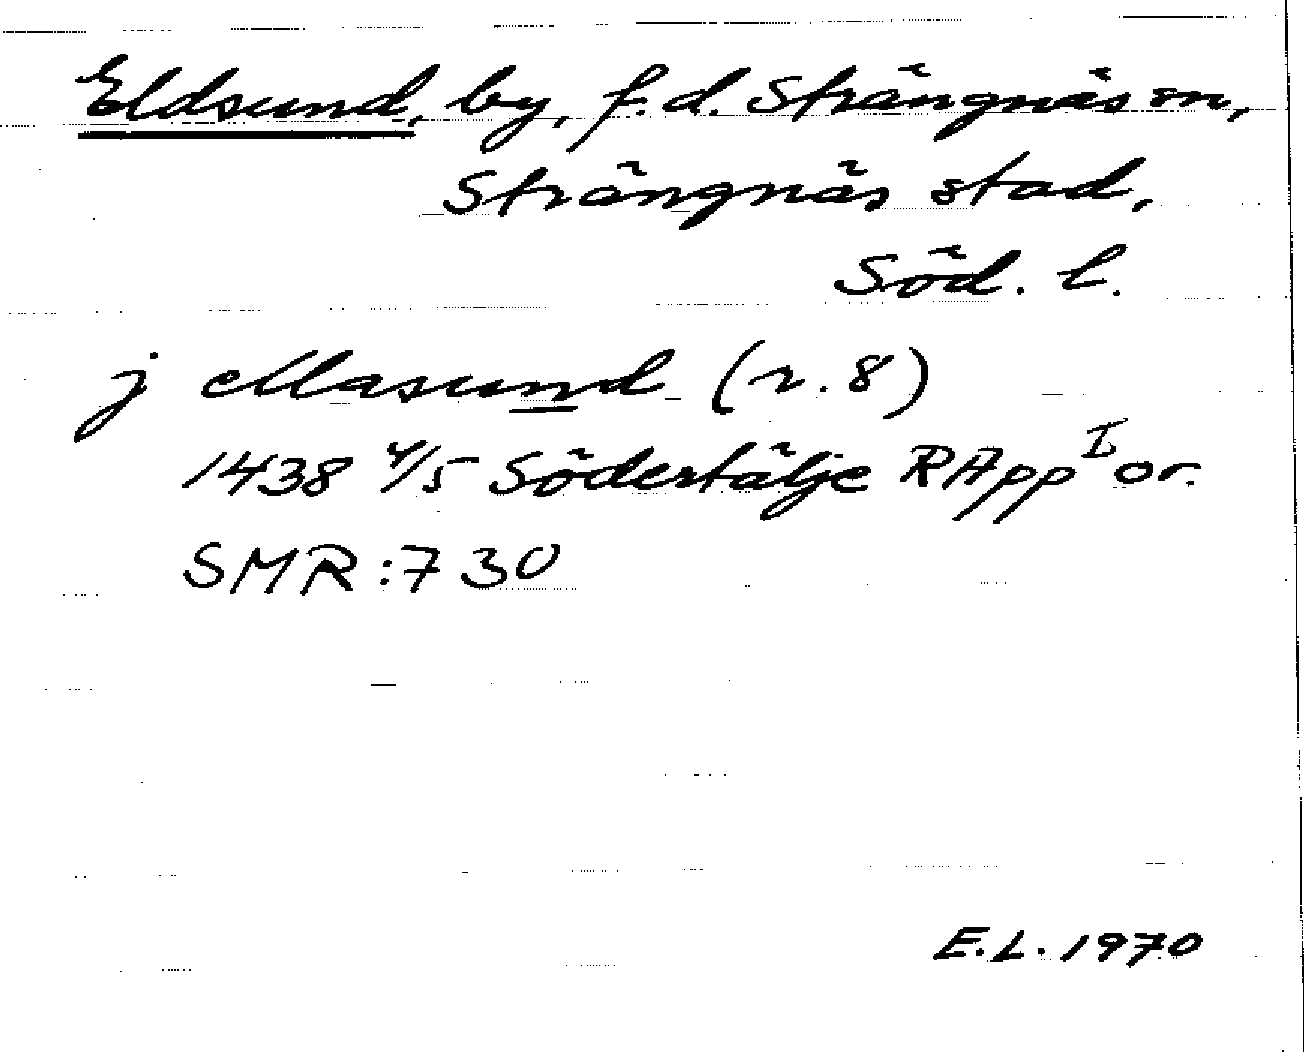 Eldsund, by, f.d. Strängnäs sn,
Strängnäs stad,
Söd. l.
j ellasund (r. 8)
1438 4/5 Södertälje RApp I or.
SMR:730
E.L. 1970